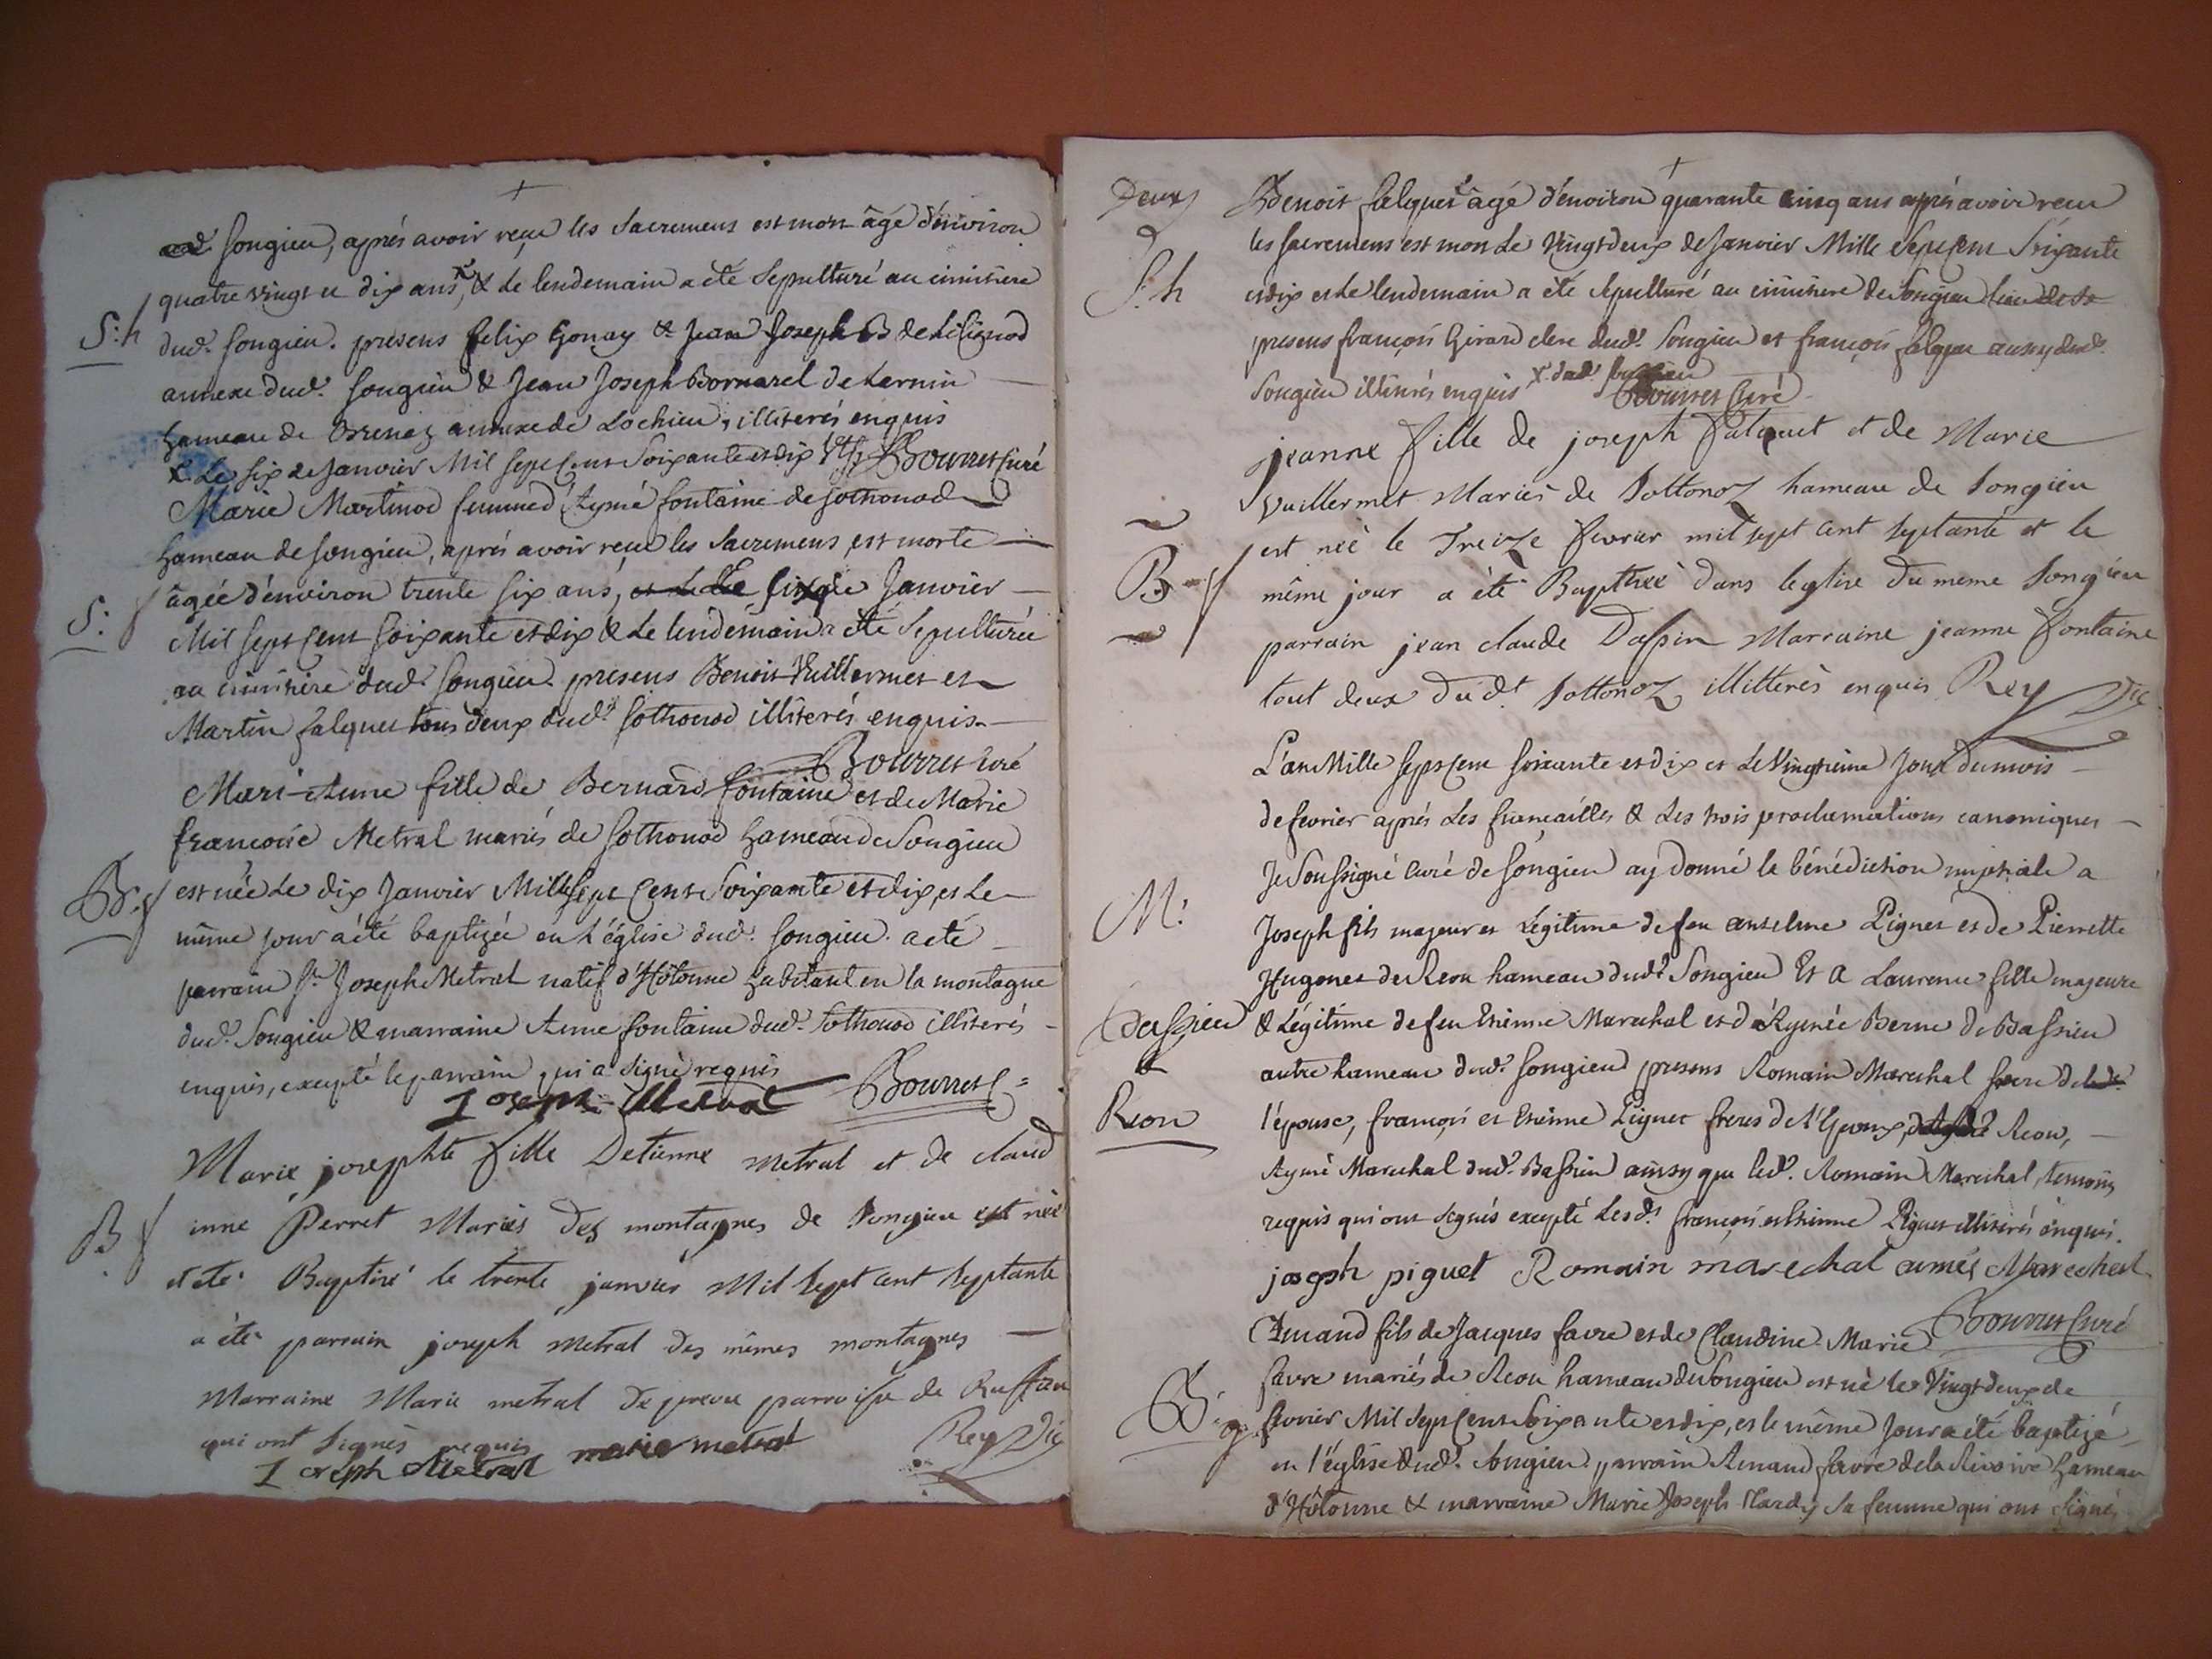 Songieu, aprés avoir reçu les Sacremens est mort âgé d'environ
quatre vingt et dix ans, & le lendemain a été Sepulturé au cimitiere
S: h
dud. Songieu. presens felix Gonay & Jean Joseph B de Lilignod
annexe dud. Songieu & Jean Joseph Bornarel de Lernin
hameau de Brenaz annexe de Lochieu, illiterés enquis
x Le six de Janvier Mil Sept Cent Soixante et dix Bourret Curé
Marie Martinod femme d'Aymé fontaine de Sothonod
hameau de Songieu, aprés avoir reçu les Sacremens est morte
S:
âgée d'environ trente six ans, Le six de Janvier
Mil Sept Cent Soixante et dix & Le lendemain a été Sepulturée
au cimitiere dud. Songieu. presens Benoit Vuillermet et
Martin falquet tous deux dud. Sothonod illiterés enquis
Bourret curé
Mari-Anne fille de Bernard fontaine et de Marie
françoise Metral mariés de Sothonod hameau de Songieu
B: f
est née Le dix Janvier Mille Sept Cent Soixante et dix, et Le
même jour a été baptizée en L'église dud. Songieu. a été
parrain Sr. Joseph Metral natif d'Hôtonne habitant en la montagne
dud. Songieu & marraine Anne fontaine dud. Sothonod illiterés
enquis, excepté le parrain qui a signé requis
Joseph Metral Bourret C
Marie josephte fille Detienne metral et de claud
B f
inne Perret Mariés Des montagnes de Songieu est née
et eté Baptisé le trente janvier Mil sept cent septante
a été parrain joseph metral des mêmes montagnes
Marraine Marie metral De paroisse de Ruffieu
qui ont signés requis Rey Vic
Joseph Metral marie metral
Deux
Benoit falquet âgé d'environ quarante cinq ans aprés avoir reçu
les Sacremens est mort Le Vingt deux de Janvier Mille Sept Cent Soixante
S. h
et dix et Le lendemain a été Sepulturé au cimitiere de Songieu
presens françois Girard clerc dud. Songieu et françois falquet aussy dud.
Songieu illiterés enquis x dud. Songieu
Bourret Curé
jeanne fille de joseph falquet et de Marie
Vuillermet Mariés de Sottonoz hameau de Songieu
est née le Treize fevrier mil sept cent septante et le
B f
même jour a été Baptisée dans leglise Du meme Songieu
parrain jean claude Dassin Marraine jeanne fontaine
tout deux Dudt Sottonoz illitterés enquis Rey Vic
L'an Mille Sept Cent Soixante et dix et Le Vingtieme Jour du mois
de fevrier aprés Les fiançailles & Les trois proclamations canoniques
Je Soussigné Curé de Songieu ay donné la bénédiction nuptiale a
M:
Joseph fils majeur et Légitime de feu anselme Piguet et de Pierrette
Hugonet de Reon hameau dudt Songieu Et a Laurence fille majeure
Bassieu & Reon
& Légitime de feu Etienne Marechal et d'Aymée Berne de Bassieu
autre hameau dud. Songieu presens Romain Marechal frere de
l'épouse, françois et Etienne Piguet freres de L'Epoux, Reon,
Aymé Marechal dud. Bassieu ainsy que led. Romain Marechal, temoins
requis qui ont signés excepté Lesd. françois et Etienne Piguet illiterés enquis.
joseph piguet Romain marechal aimé Marechal
Bourret Curé
Amand fils de Jacques favre et de Claudine Marie
favre mariés de Reon hameau de Songieu est né le Vingt deux de
B: g.
fevrier Mil Sept Cent Soixante et dix, et le même Jour a été baptizé
en l'église dud. Songieu parrain Amand favre de la Riviere hameau
d'Hôtonne & marraine Marie Joseph Mardy sa femme qui ont signés